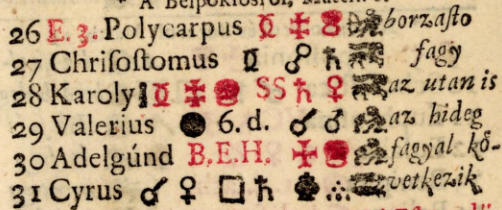 A Belpoklosról,
26 E. 3. Polycarpus ☿ borzaſto
27 Chriſoſtomus ☿ ☍ ♄ fagy
28 Karoly ☿ SS ♄ ♀ az utan is
29 Valerius ● 6. d. ☌ ♂ az hideg
30 Adelgúnd B. E. H. fagyal kö-
31 Cyrus ☌ ♀ □ ♄ vetkezik